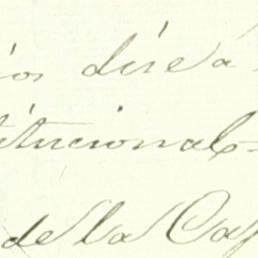 ios dire á
titucional
de la Ca